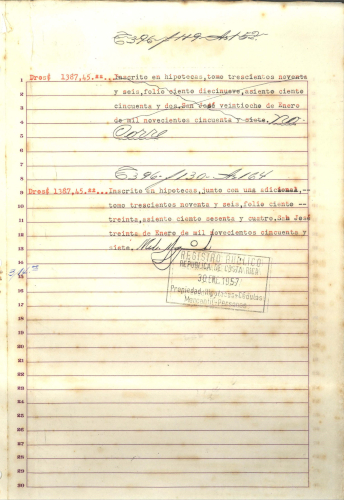 T396-f119-As152-
1 Dres¢ 1387,45.**...Inscrito en hipotecas,tomo trescientos noventa
2 y seis,folio ciento diecinueve,asiento ciento
3 cincuenta y dos.San José veintiocho de Enero
4 de mil novecientos cincuenta y siete.
5
6
7
8 T396-f130-As164
9 Dres¢ 1387,45.**...Inscrito en hipotecas,junto con una adicional,--
10 tomo trescientos noventa y seis,folio ciento --
11 treinta,asiento ciento sesenta y cuatro,San José
12 treinta de Enero de mil novecientos cincuenta y
13 siete,
14
REGISTRO PUBLICO
REPUBLICA DE COSTA RICA
30 ENE. 1957
Propiedad-Hipotecas-Cédulas
Mercantil-Personas
15
16
17
18
19
20
21
22
23
24
25
26
27
28
29
30